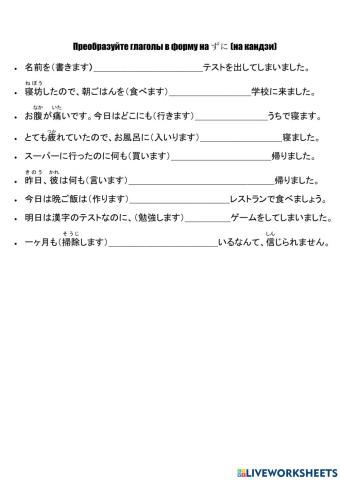 Преобразуйте глаголы в форму на ずに (на кандзи)
• 名前を(書きます)____________________テストを出してしまいました。
ねぼう
• 寝坊したので、朝ごはんを(食べます)_______________学校に来ました。
なか いた
• お腹が痛いです。今日はどこにも(行きます)______________うちで寝ます。
つか
• とても疲れていたので、お風呂に(入いります)______________寝ました。
• スーパーに行ったのに何も(買います)__________________帰りました。
きのう かれ
• 昨日、彼は何も(言います)_____________________帰りました。
• 今日は晩ご飯は(作ります)__________________レストランで食べましょう。
• 明日は漢字のテストなのに、(勉強します)_______ゲームをしてしまいました。
そうじ しん
• 一ヶ月も(掃除します)____________________いるなんて、信じられません。
LIVEWORKSHEETS